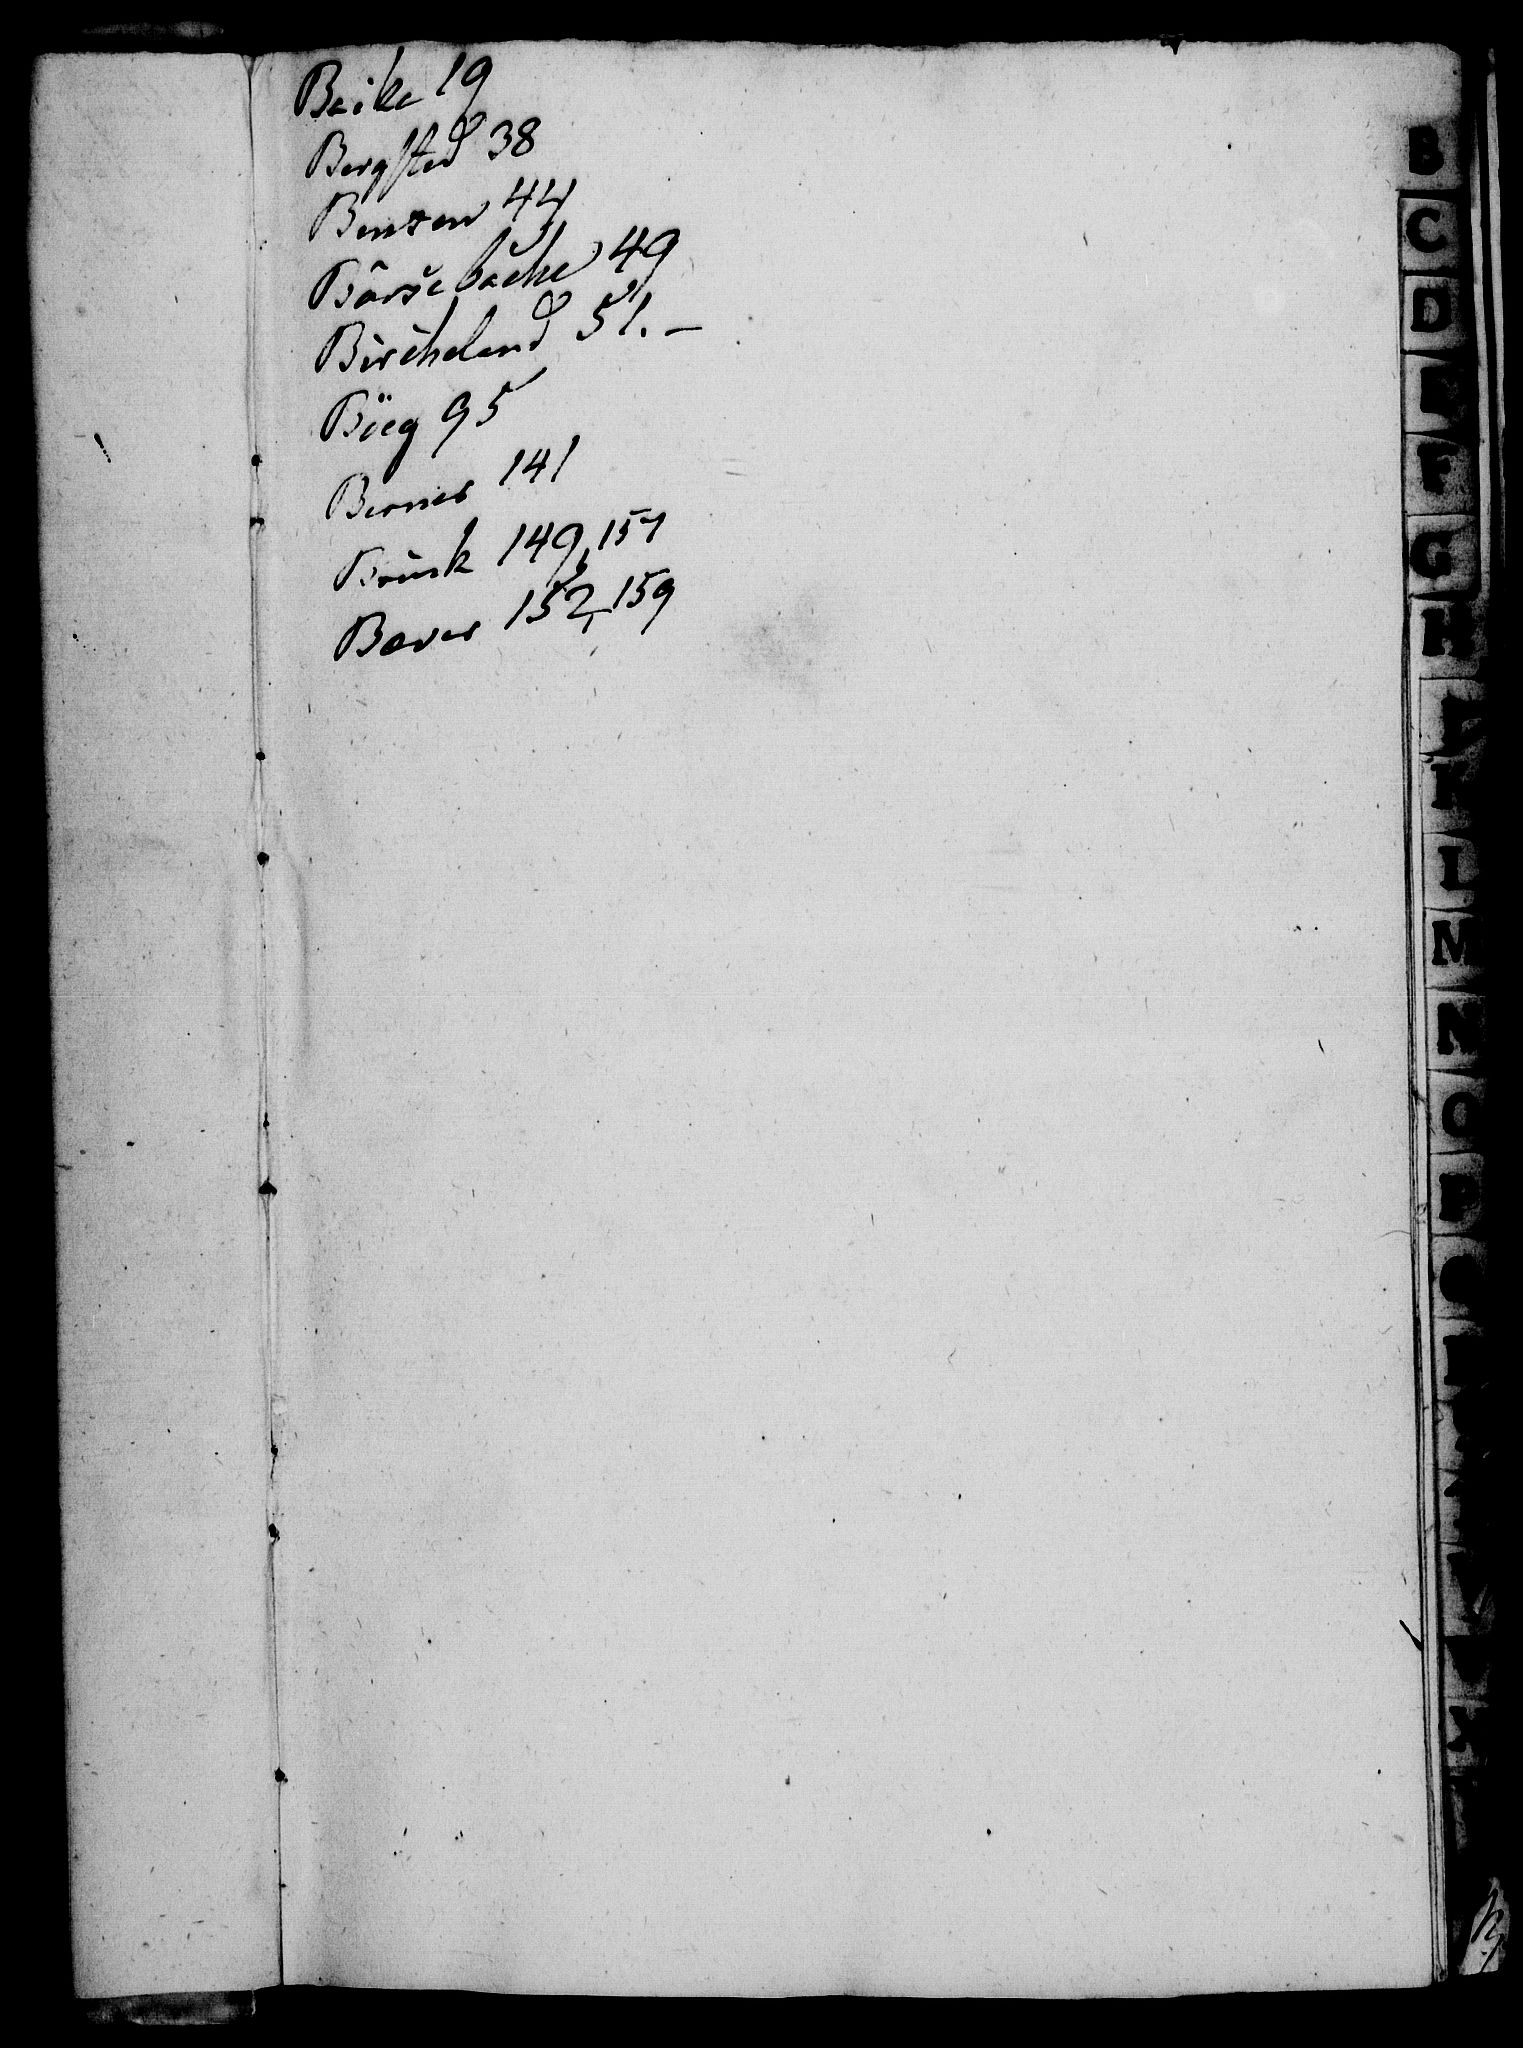 Beike 19
Bergsted 38
Benzen 44
Bärsebäche 49
Bircheland 51. –
Böeg 95
Berner 141
Brinck 149, 157
Bæver 152, 159
B
C
D
E
F
G
H
I
K
L
M
N
O
P
Q
R